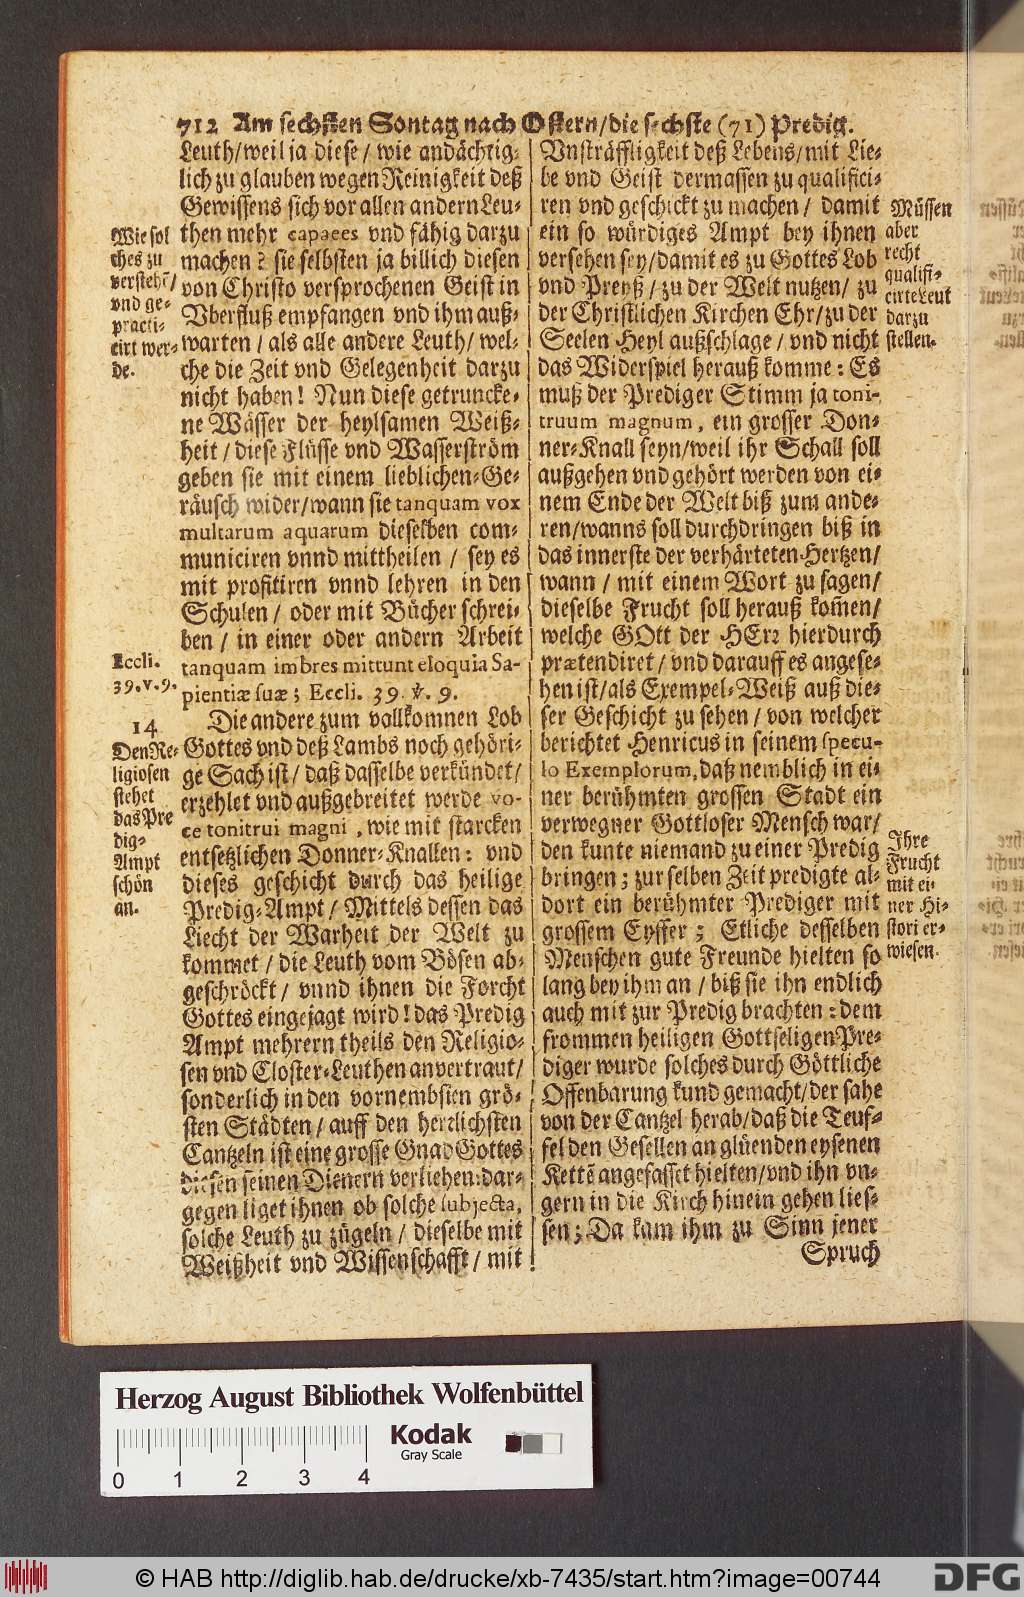 712 Am sechsten Sontag nach Ostern/die sechste (71) Predig.
Leuth/weil ja diese/ wie andächtig-
lich zu glauben wegen Reinigkeit deß
Gewissens sich vor allen andern Leu-
then mehr capaces vnd fähig darzu
machen? sie selbsten ja billich diesen
von Christo versprochenen Geist in
Vberfluß empfangen vnd ihm auß-
warten/als alle andere Leuth/wel-
che die Zeit vnd Gelegenheit darzu
nicht haben! Nun diese getruncke-
ne Wässer der heylsamen Weiß-
heit/diese Flüsse vnd Wasserström
geben sie mit einem lieblichen Ge-
räusch wider/wann sie tanquam vox
multarum aquarum dieselben com-
municiren vnnd mittheilen/ sey es
mit profitiren vnnd lehren in den
Schulen/ oder mit Bücher schrei-
ben/ in einer oder andern Arbeit
tanquam imbres mittunt eloquia Sa-
pientiæ suæ; Eccli. 39. v. 9.
Die andere zum vollkomnen Lob
Gottes vnd deß Lambs noch gehöri-
ge Sach ist/ daß dasselbe verkündet/
erzehlet vnd außgebreitet werde vo-
ce tonitrui magni, wie mit starcken
entsetzlichen Donner-Knallen: vnd
dieses geschicht durch das heilige
Predig-Ampt/ Mittels dessen das
Liecht der Warheit der Welt zu
kommet/die Leuth vom Bösen ab-
geschröckt/ vnnd ihnen die Forcht
Gottes eingejagt wird! das Predig
Ampt mehrern theils den Religio-
sen vnd Closter-Leuthen anvertraut/
sonderlich in den vornembsten grö-
sten Städten/ auff den herrlichsten
Cantzeln ist eine grosse Gnad Gottes
diesen seinen Dienern verliehen: dar-
gegen liget ihnen ob solche subjecta,
solche Leuth zu zügeln/ dieselbe mit
Weißheit vnd Wissenschafft/ mit
Wie sol
ches zu
verstehē/
vnd ge-
practi-
cirt wer-
de.
Eccli.
39. v. 9.
14
Den Re-
ligiosen
stehet
das Pre
dig-
Ampt
schön
an.
Vnsträffligkeit deß Lebens/mit Lie-
be vnd Geist dermassen zu qualifici-
ren vnd geschickt zu machen/ damit
ein so würdiges Ampt bey ihnen
versehen sey/damit es zu Gottes Lob
vnd Preyß/ zu der Welt nutzen/ zu
der Christlichen Kirchen Ehr/zu der
Seelen Heyl außschlage/ vnd nicht
das Widerspiel herauß komme: Es
muß der Prediger Stimm ja toni-
truum magnum, ein grosser Don-
ner-Knall seyn/weil ihr Schall soll
außgehen vnd gehört werden von ei-
nem Ende der Welt biß zum ande-
ren/wanns soll durchdringen biß in
das innerste der verhärteten Hertzen/
wann/ mit einem Wort zu sagen/
dieselbe Frucht soll herauß kom̄en/
welche GOtt der HErr hierdurch
prætendiret/ vnd darauff es angese-
hen ist/als Exempel-Weiß auß die-
ser Geschicht zu sehen/ von welcher
berichtet Henricus in seinem specu-
lo Exemplorum, daß nemblich in ei-
ner berühmten grossen Stadt ein
verwegner Gottloser Mensch war/
den kunte niemand zu einer Predig
bringen; zur selben Zeit predigte al-
dort ein berühmter Prediger mit
grossem Eyffer; Etliche desselben
Menschen gute Freunde hielten so
lang bey ihm an/ biß sie ihn endlich
auch mit zur Predig brachten: dem
frommen heiligen Gottseligen Pre-
diger wurde solches durch Göttliche
Offenbarung kund gemacht/der sahe
von der Cantzel herab/daß die Teuf-
fel den Gesellen an glüenden eysenen
Kettē angefasset hielten/vnd ihn vn-
gern in die Kirch hinein gehen lies-
sen; Da kam ihm zu Sinn jener
Spruch
Müssen
aber
recht
qualifi-
cirte Leut
darzu
stellen.
Ihre
Frucht
mit ei-
ner Hi-
stori er-
wiesen.
Herzog August Bibliothek Wolfenbüttel
Kodak
Gray Scale
0 1 2 3 4
© HAB http://diglib.hab.de/drucke/xb-7435/start.htm?image=00744
DFG